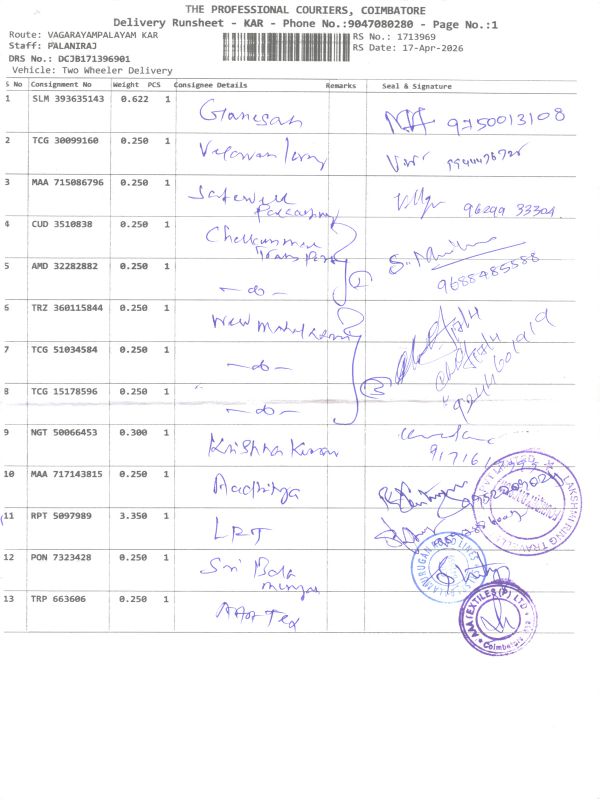 THE PROFESSIONAL COURIERS, COIMBATORE
Delivery Runsheet - KAR - Phone No.:9047080280 - Page No.:1
Route: VAGARAYAMPALAYAM KAR
RS No.: 1713969
Staff: PALANIRAJ
RS Date: 17-Apr-2026
DRS No.: DCJB171396901
Vehicle: Two Wheeler Delivery
S No Consignment No Weight PCS Consignee Details Remarks Seal & Signature
1 SLM 393635143 0.622 1 Ganesan 9750013108
2 TCG 30099160 0.250 1
3 MAA 715086796 0.250 1 Safewell 96299 33304
4 CUD 3510838 0.250 1 Transport
5 AMD 32282882 0.250 1 - do - 2 9688485588
6 TRZ 360115844 0.250 1 New
7 TCG 51034584 0.250 1 - do -
8 TCG 15178596 0.250 1 - do - 3 9244601919
9 NGT 50066453 0.300 1 Krishna
10 MAA 717143815 0.250 1 Aadhitya
11 RPT 5097989 3.350 1 LRT
12 PON 7323428 0.250 1 Sri Bala
13 TRP 663606 0.250 1 Tex
LAKSHMI RING TRAVELLERS
AAA TEXTILES (P) LTD
Coimbatore